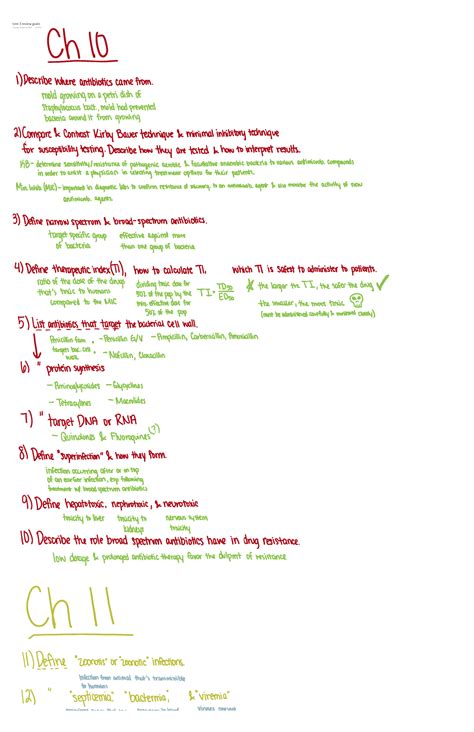 Unit 3 review goals
Ch 10
1) Describe where antibiotics came from.
mold growing on a petri dish of
Staphylococcus bact., mold had prevented
bacteria around it from growing
2) Compare & Contrast Kirby Bauer technique & minimal inhibitory technique
for susceptibility testing. Describe how they are tested & how to interpret results.
KB- determine sensitivity/resistance of pathogenic aerobic & facultative anaerobic bacteria to various antimicrobic compounds
in order to assist a physician in treatment options for their patients.
Min Inhib (MIC) - important in diagnostic labs to confirm resistance of microorg. to an antimicrob. agent & also monitor the activity of new
antimicrob. agents.
3) Define narrow spectrum & broad-spectrum antibiotics.
target specific group effective against more
of bacteria than one group of bacteria
4) Define therapeutic index (TI), how to calculate TI, which TI is safest to administer to patients.
ratio of the dose of the drugs dividing toxic dose for TI = TD50/ED50 the larger the TI, the safer the drug
that's toxic to humans 50% of the pop by the
compared to the MIC min effective dose for the smaller, the more toxic
50% of the pop (must be administered carefully & monitored closely)
5) List antibiotics that target the bacterial cell wall.
Penicillin fam - Penicillin G/V - Ampicillin, Carbenicillin, Amoxicillin
targets bac. cell - Nafcillin, Cloxacillin
wall
6) " protein synthesis
- Aminoglycosides - Glycyclines
- Tetracyclines - Macrolides
7) " target DNA or RNA
- Quinolones & Fluoroquines (?)
8) Define "superinfection" & how they form.
infection occurring after or on top
of an earlier infection, esp following
treatment w/ broad spectrum antibiotics
9) Define hepatotoxic, nephrotoxic, & neurotoxic
toxicity to liver toxicity to nervous system
kidneys toxicity
10) Describe the role broad spectrum antibiotics have in drug resistance.
low dosage & prolonged antibiotic therapy favor the of resistance
Ch 11
11) Define "zoonosis" or "zoonotic" infections.
infection from animal that's transmissible
to humans
12) " "septicemia," "bacteremia," & "viremia"